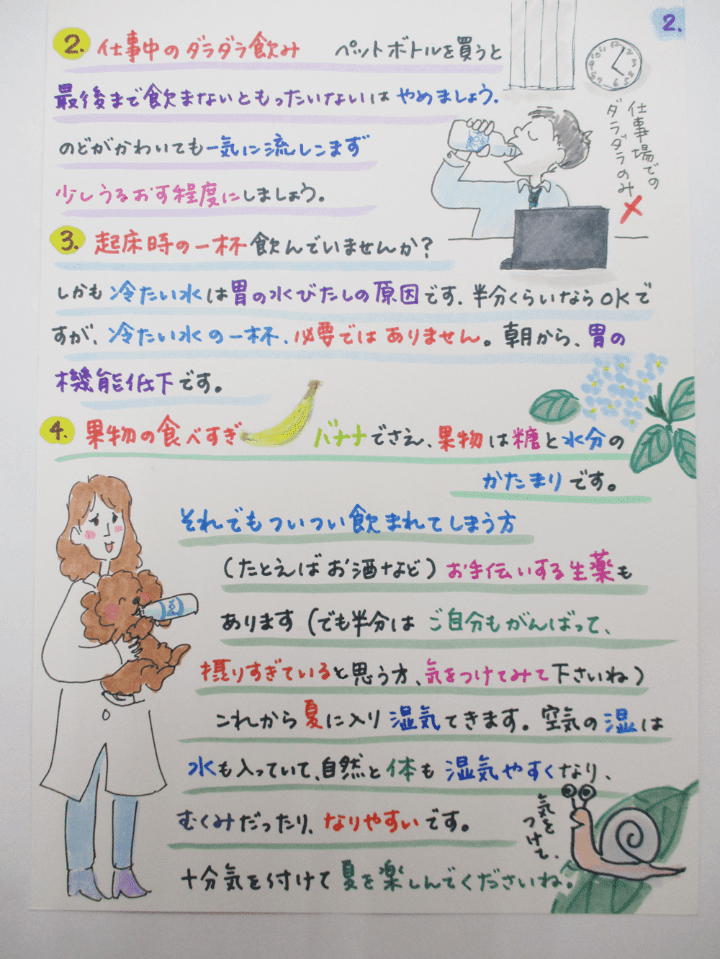 2.
2. 仕事中のダラダラ飲み ペットボトルを買うと
最後まで飲まないともったいないは やめましょう.
のどがかわいても一気に流しこまず
少しうるおす程度にしましょう。
仕事場での
ダラダラのみ
×
3. 起床時の一杯 飲んでいませんか?
しかも 冷たい水は胃の水びたしの原因です. 半分くらいならOKで
すが、冷たい水の一杯、必要では ありません。朝から、胃の
機能低下です。
4. 果物の食べすぎ バナナでさえ、果物は糖と水分の
かたまりです。
それでもついつい飲まれてしまう方
(たとえばお酒など) お手伝いする生薬も
あります (でも半分は ご自分もがんばって、
摂りすぎていると思う方、気をつけてみて下さいね)
これから夏に入り 湿気てきます。空気の湿は
水も入っていて、自然と体も 湿気やすくなり、
むくみだったり、なりやすいです。
十分気を付けて 夏を楽しんでくださいね。
気を
つけて、